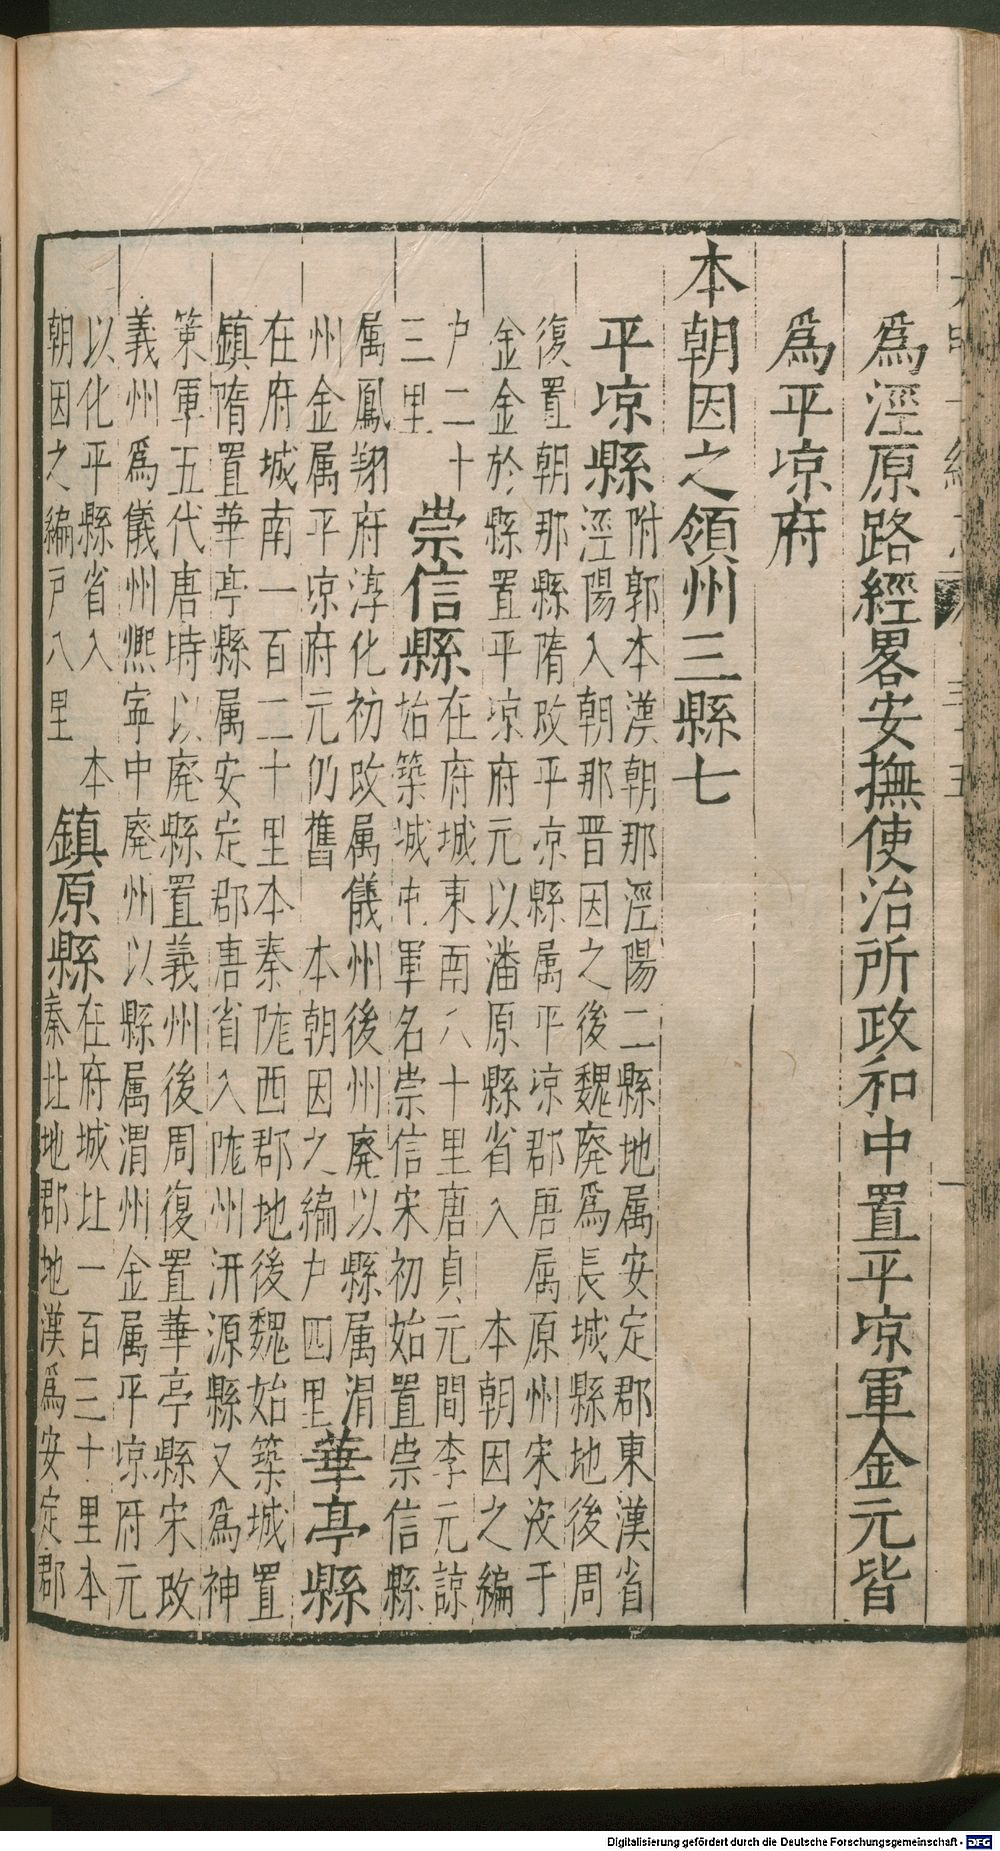 爲涇原路經畧安撫使治所政和中置平凉軍金元皆
爲平凉府
本朝因之領州三縣七
平凉縣
附郭本漢朝那涇陽二縣地属安定郡東漢省
涇陽入朝那晋因之後魏廢爲長城縣地後周
復置朝那縣隋改平凉縣属平凉郡唐属原州宋没于
金金於縣置平凉府元以潘原縣省入 本朝因之編
户二十
三里
崇信縣
在府城東南八十里唐貞元間李元諒
始築城屯軍名崇信宋初始置崇信縣
属鳳翔府淳化初改属儀州後州廢以縣属渭
州金属平凉府元仍舊 本朝因之編户四里
華亭縣
在府城南一百二十里本秦陇西郡地後魏始築城置
鎮隋置華亭縣属安定郡唐省入陇州汧源縣又爲神
策軍五代唐時以廢縣置義州後周復置華亭縣宋改
義州爲儀州熈寧中廢州以縣属渭州金属平凉府元
以化平縣省入 本
朝因之編戸八里
鎮原縣
在府城北一百三十里本
秦北地郡地漢爲安定郡
Digitalisierung gefördert durch die Deutsche Forschungsgemeinschaft - DFG